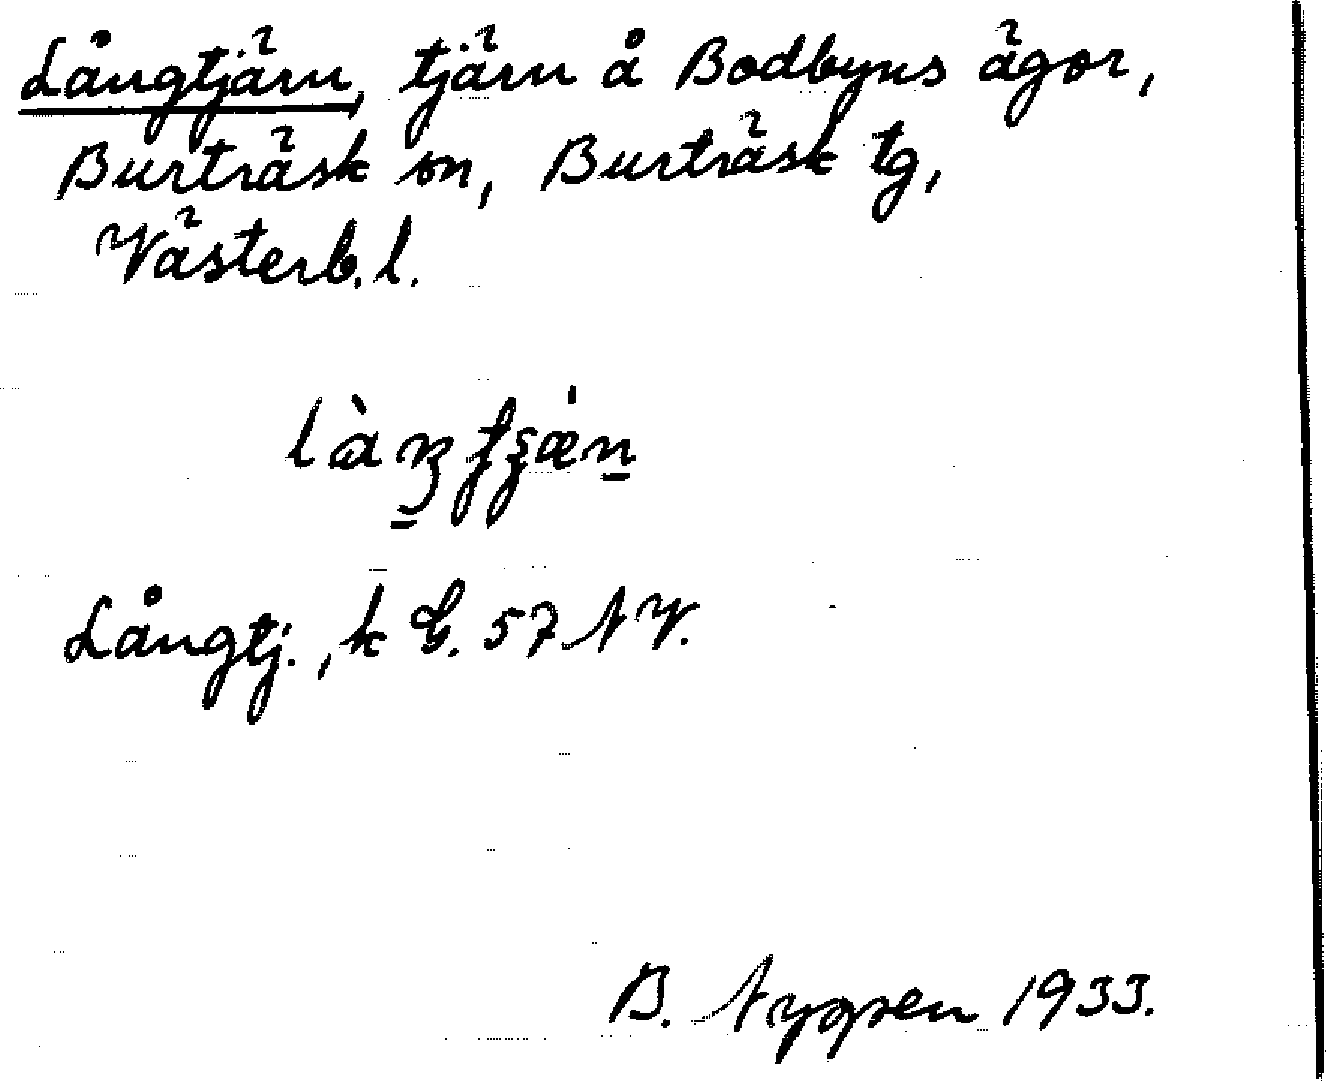 Långtjärn, tjärn å Bodbyns ägor,
Burträsk sn, Burträsk tg,
Västerb. l.
Långtj., k G. 57 NV.
B. 1933.